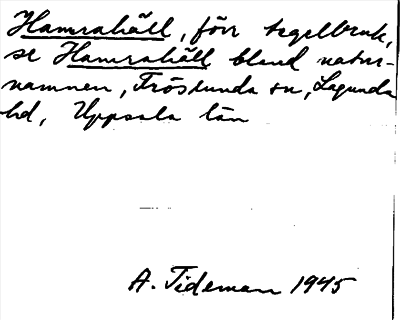 Hamrahäll, förr tegelbruk,
se Hamrahäll bland natur-
namnen, Fröslunda sn, Lagunda
hd, Uppsala län
A. Tideman 1945